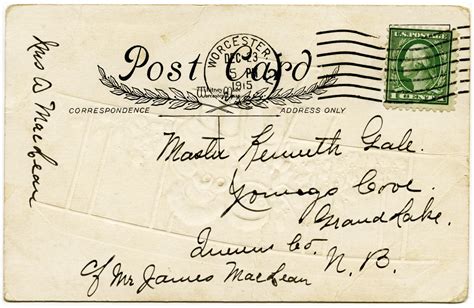 Post Card
WORCESTER,
DEC 23
5 PM
1915
U.S. POSTAGE
1 CENT 1
CORRESPONDENCE
ADDRESS ONLY
Mrs D MacLean
Master Kenneth Gale.
Cove.
Grand Lake.
Queens Co.
N. B.
c/o Mr James MacLean